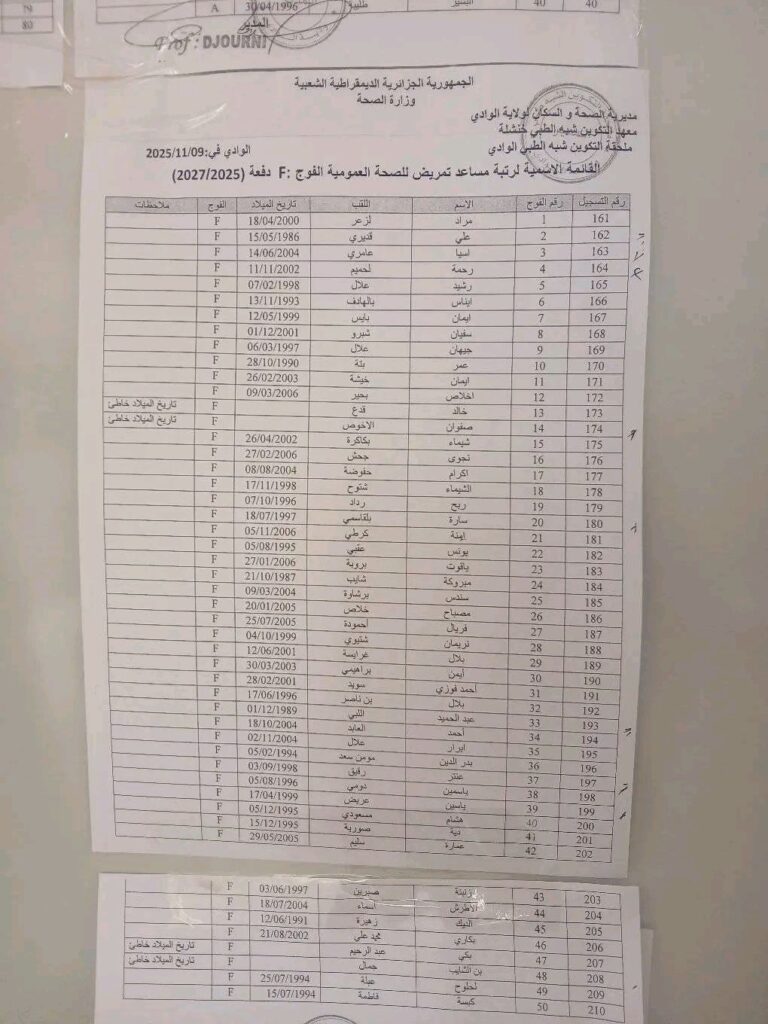 79
80
40 40 البشير طليبة 30/04/1996 A
المدير
Prof: DJOURNI
الجمهورية الجزائرية الديمقراطية الشعبية
وزارة الصحة
مديرية الصحة و السكان لولاية الوادي
معهد التكوين شبه الطبي خنشلة
ملحقة التكوين شبه الطبي الوادي
الوادي في:2025/11/09
القائمة الاسمية لرتبة مساعد تمريض للصحة العمومية الفوج :F دفعة (2027/2025)
رقم التسجيل رقم الفوج الاسم اللقب تاريخ الميلاد الفوج ملاحظات
161 1 مراد لزعر 18/04/2000 F
162 2 علي قديري 15/05/1986 F
163 3 اسيا عامري 14/06/2004 F
164 4 رحمة لحميم 11/11/2002 F
165 5 رشيد علال 07/02/1998 F
166 6 ايناس بالهادف 13/11/1993 F
167 7 ايمان بايس 12/05/1999 F
168 8 سفيان شبرو 01/12/2001 F
169 9 جيهان علال 06/03/1997 F
170 10 عمر بلة 28/10/1990 F
171 11 ايمان خيشة 26/02/2003 F
172 12 اخلاص بحير 09/03/2006 F
173 13 خالد قدع F تاريخ الميلاد خاطئ
174 14 صفوان الاخوص F تاريخ الميلاد خاطئ
175 15 شيماء بكاكرة 26/04/2002 F
176 16 نجوى جحش 27/02/2006 F
177 17 اكرام حفوضة 08/08/2004 F
178 18 الشيماء شتوح 17/11/1998 F
179 19 ربح رداد 07/10/1996 F
180 20 سارة بلقاسمي 18/07/1997 F
181 21 امنة كرطي 05/11/2006 F
182 22 يونس عقبي 05/08/1995 F
183 23 ياقوت بروبة 27/01/2006 F
184 24 مبروكة شايب 21/10/1987 F
185 25 سندس برشاوة 09/03/2004 F
186 26 مصباح خلاص 20/01/2005 F
187 27 فريال احمودة 25/07/2005 F
188 28 نريمان شتيوي 04/10/1999 F
189 29 بلال غرايسة 12/06/2001 F
190 30 أيمن براهيمي 30/03/2003 F
191 31 أحمد فوزي سويد 28/02/2001 F
192 32 بلال بن ناصر 17/06/1996 F
193 33 عبد الحميد اللبي 01/12/1989 F
194 34 أحمد العابد 18/10/2004 F
195 35 ابرار علال 02/11/2004 F
196 36 بدر الدين مومن سعد 05/02/1994 F
197 37 عنتر رفيق 03/09/1998 F
198 38 ياسمين دومي 05/08/1996 F
199 39 ياسين عريض 17/04/1999 F
200 40 هشام مسعودي 05/12/1995 F
201 41 دية صورية 15/12/1995 F
202 42 عمارة سليم 29/05/2005 F
203 43 صبرين 03/06/1997 F
204 44 الأطرش أسماء 18/07/2004 F
205 45 الديك زهيرة 12/06/1991 F
206 46 بكاري محمد علي 21/08/2002 F
207 47 بكي عبد الرحيم F تاريخ الميلاد خاطئ
208 48 بن الشايب جمال F تاريخ الميلاد خاطئ
209 49 لحلوح عبلة 25/07/1994 F
210 50 كبسة فاطمة 15/07/1994 F